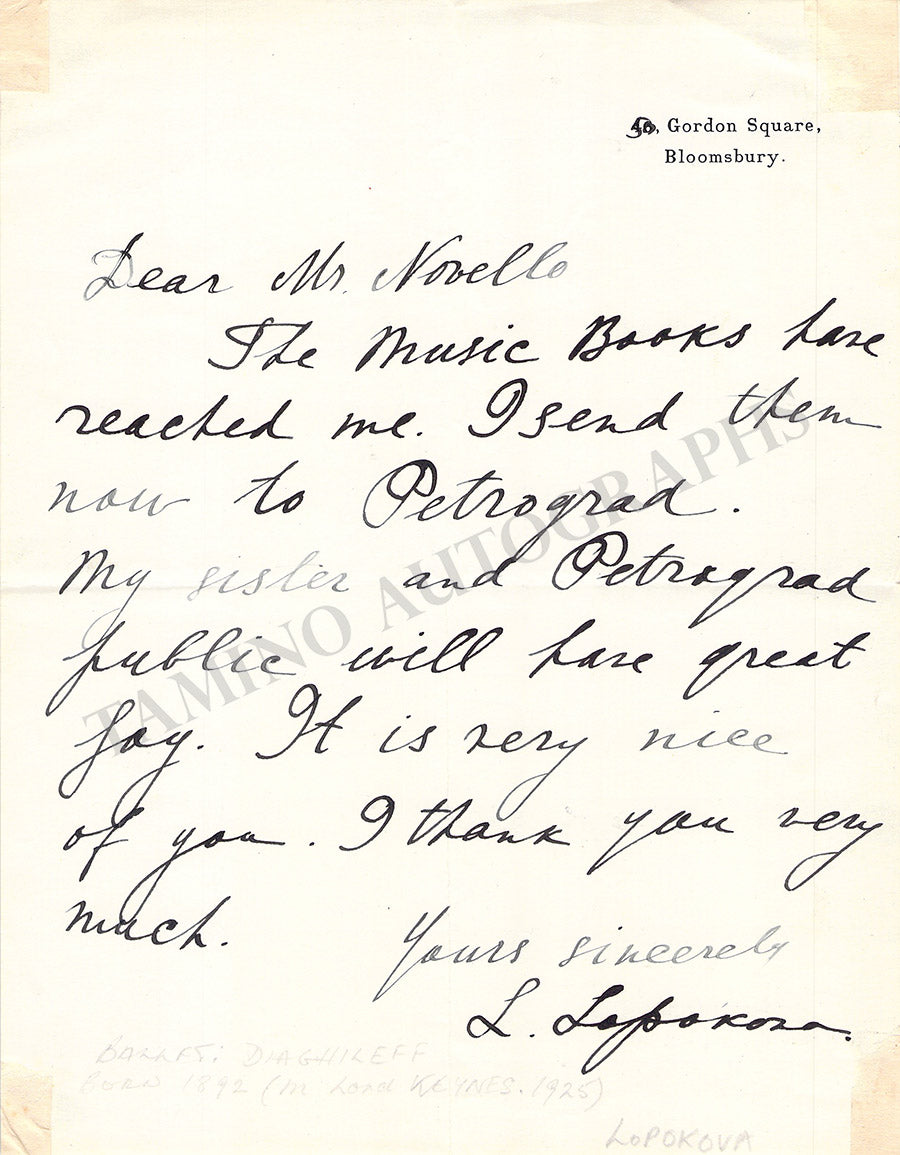 50, Gordon Square,
Bloomsbury.
Dear Mr. Novello
The Music Books have
reached me. I send them
now to Petrograd.
My sister and Petrograd
public will have great
joy. It is very nice
of you. I thank you very
much.
Yours sincerely
L. Lopokova.
BALLET: DIAGHILEFF
BORN 1892 (m Lord KEYNES. 1925)
LOPOKOVA
TAMINO AUTOGRAPHS